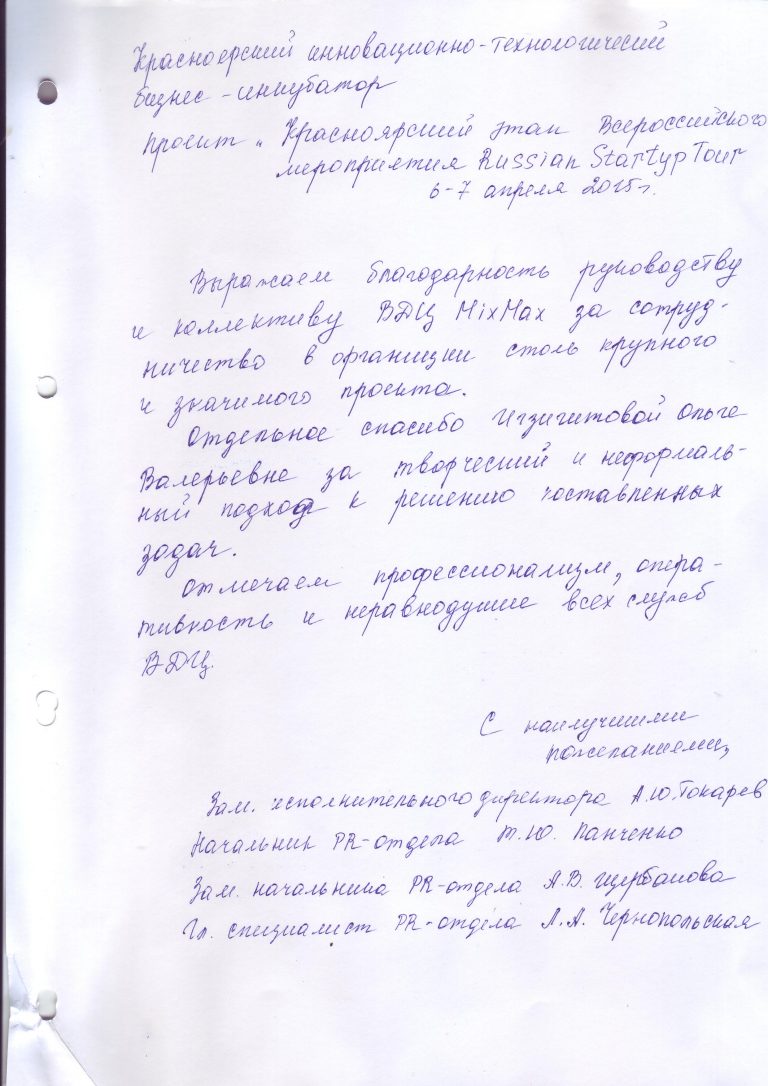 Красноярский инновационно-технологический
бизнес-инкубатор
проект „Красноярский этап Всероссийского
мероприятия Russian Startup Tour
6-7 апреля 2015г.
Выражаем благодарность руководству
и коллективу ВДЦ MixMax за сотруд-
ничество в организции столь крупного
и значимого проекта.
Отдельное спасибо Игзигитовой Ольге
Валерьевне за творческий и неформаль-
ный подход к решению поставленных
задач.
Отмечаем профессионализм, опера-
тивность и неравнодушие всех служб
ВДЦ.
С наилучшими
пожеланиями,
Зам. исполнительного директора А.Ю. Токарев
Начальник PR-отдела Т.Ю. Панченко
Зам. начальника PR-отдела А.В. Щербакова
Гл. специалист PR-отдела Л.А. Чернопольская